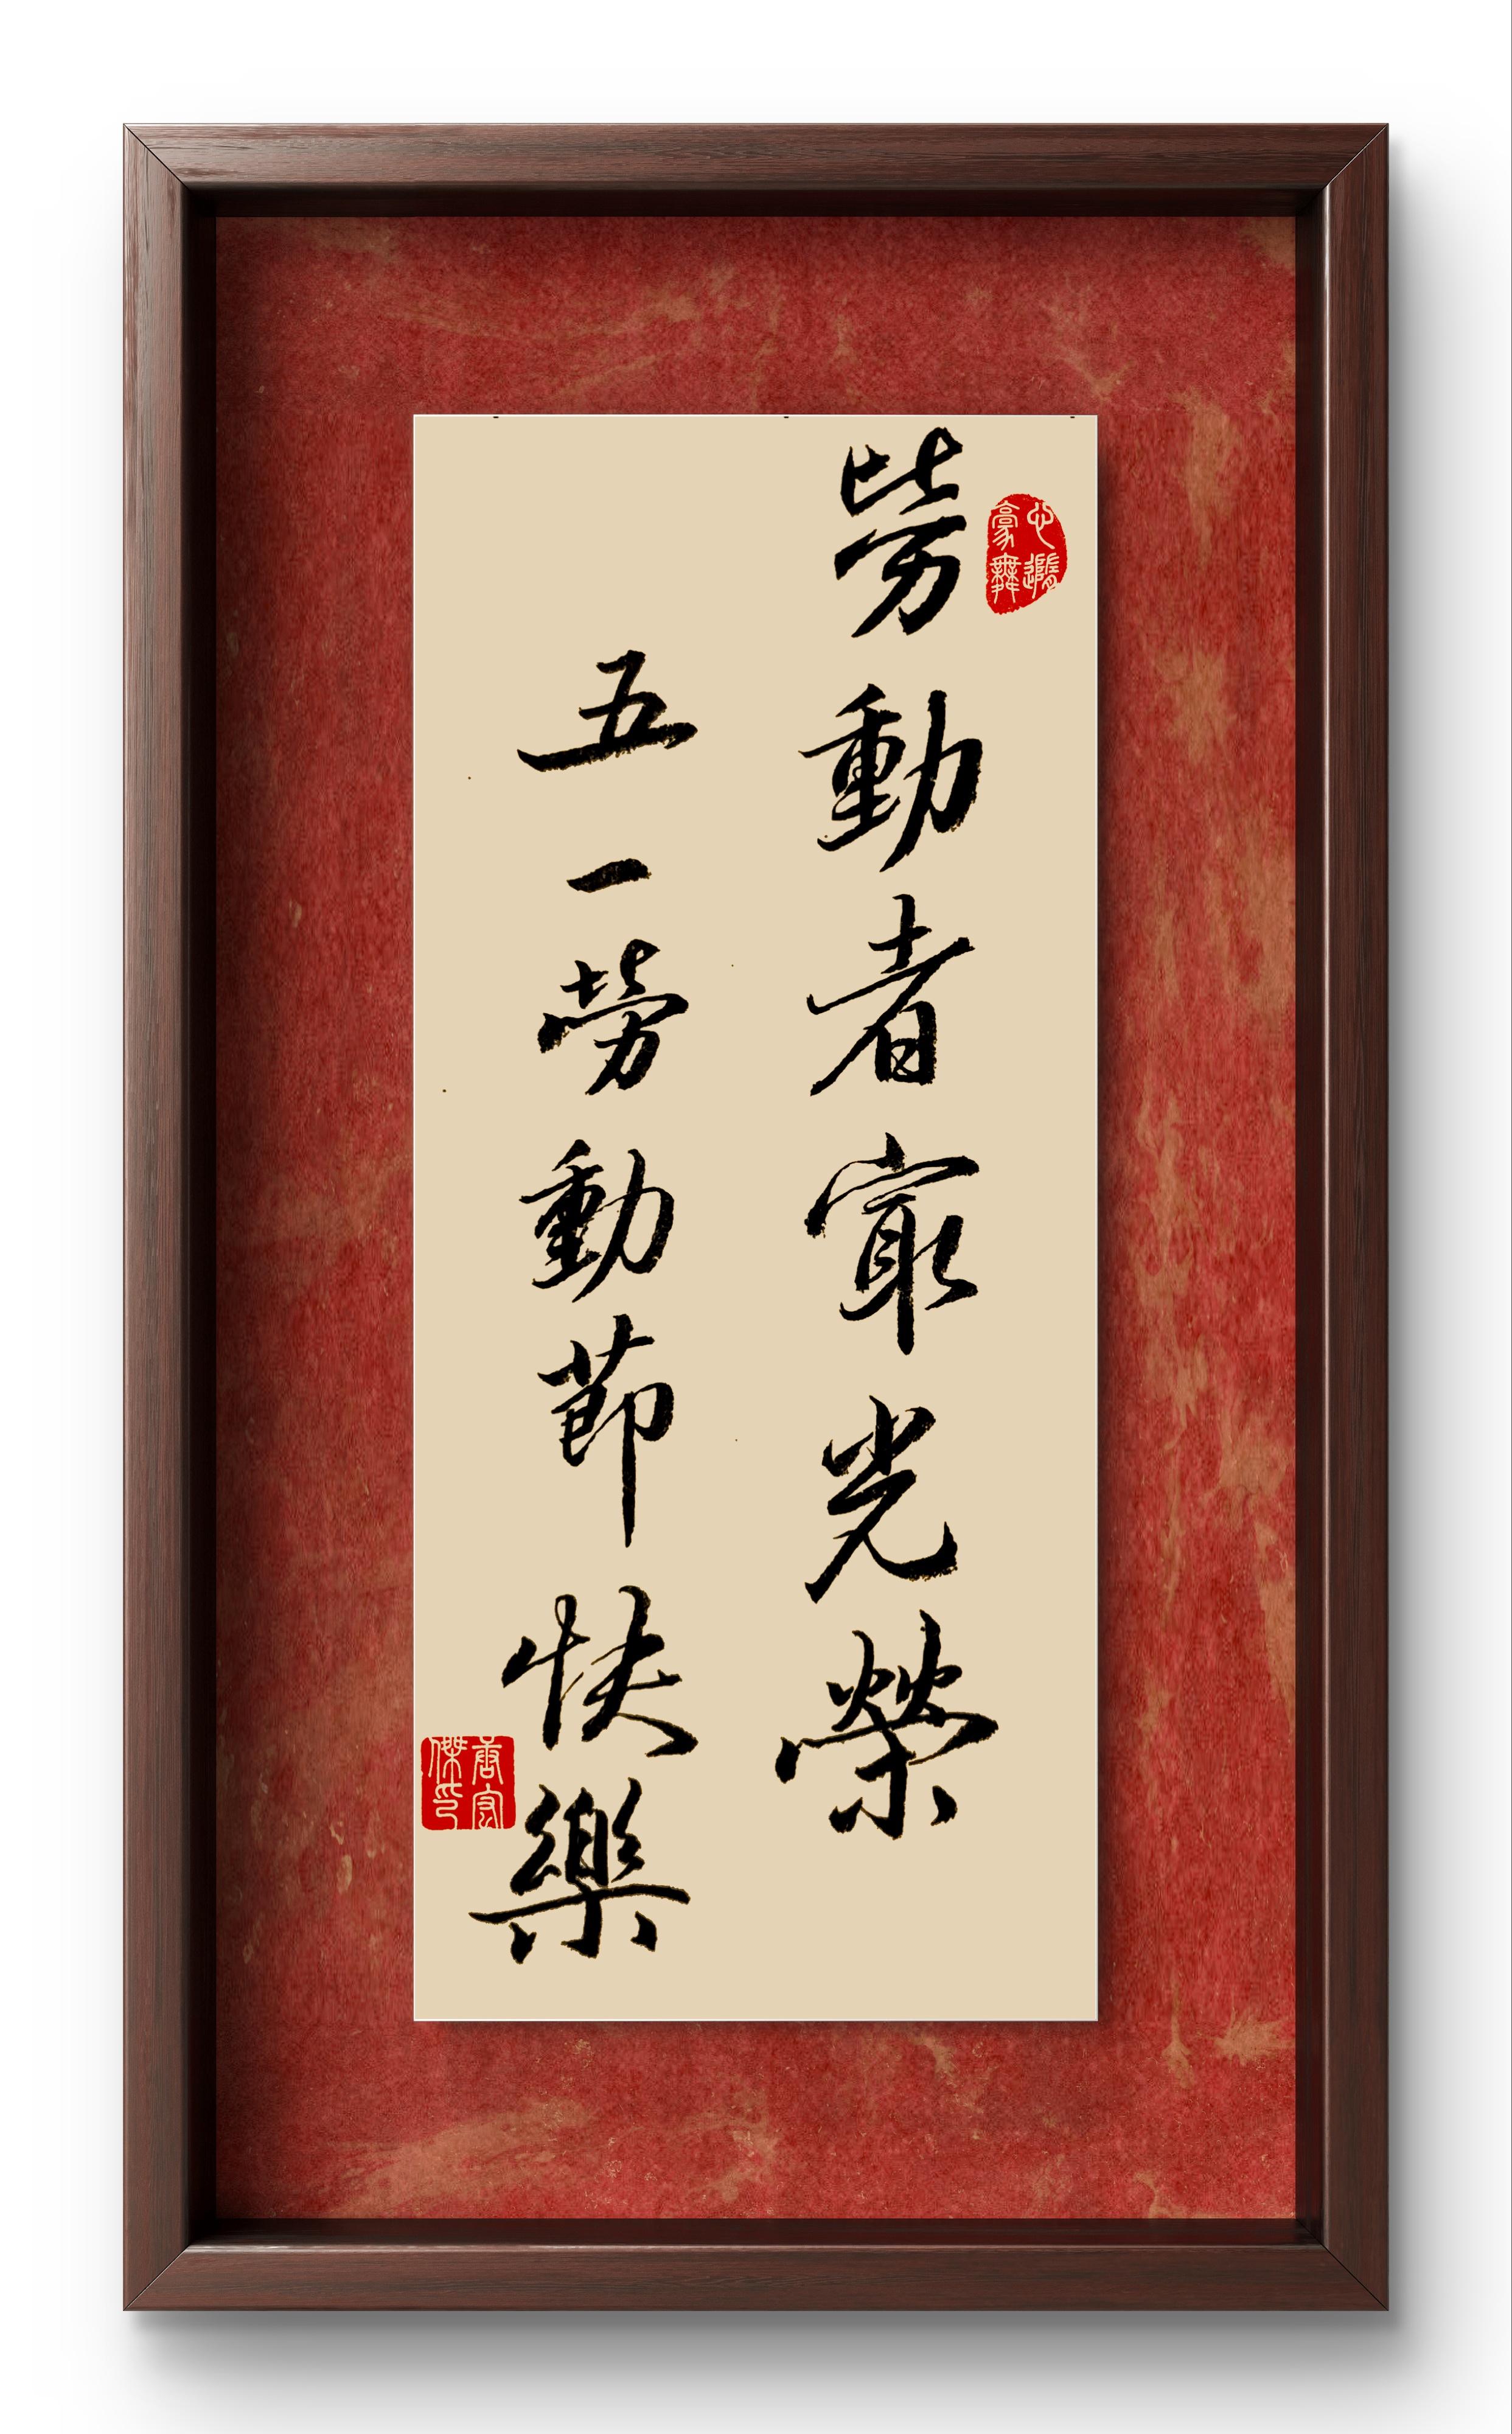 勞動者寂光榮
五一勞動節快樂